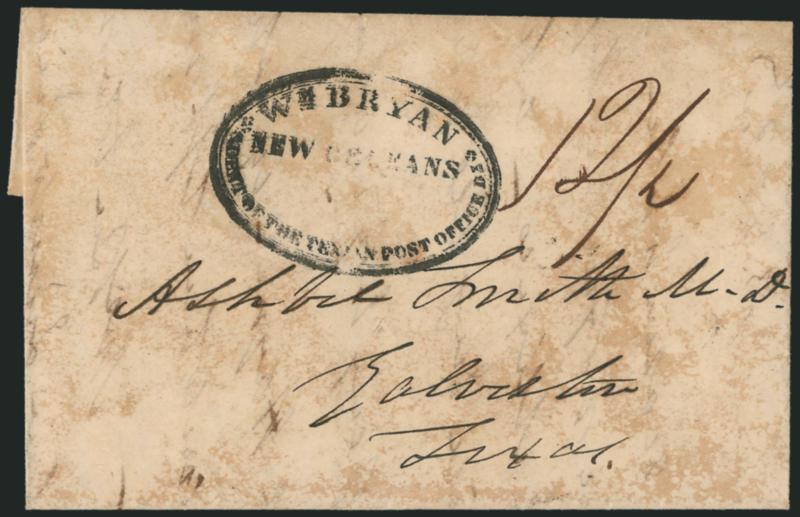 Wm BRYAN
NEW ORLEANS
OF THE TEXIAN POST OFFICE DE
12/2
Ashbel Smith M.D.
Galveston
Texas.